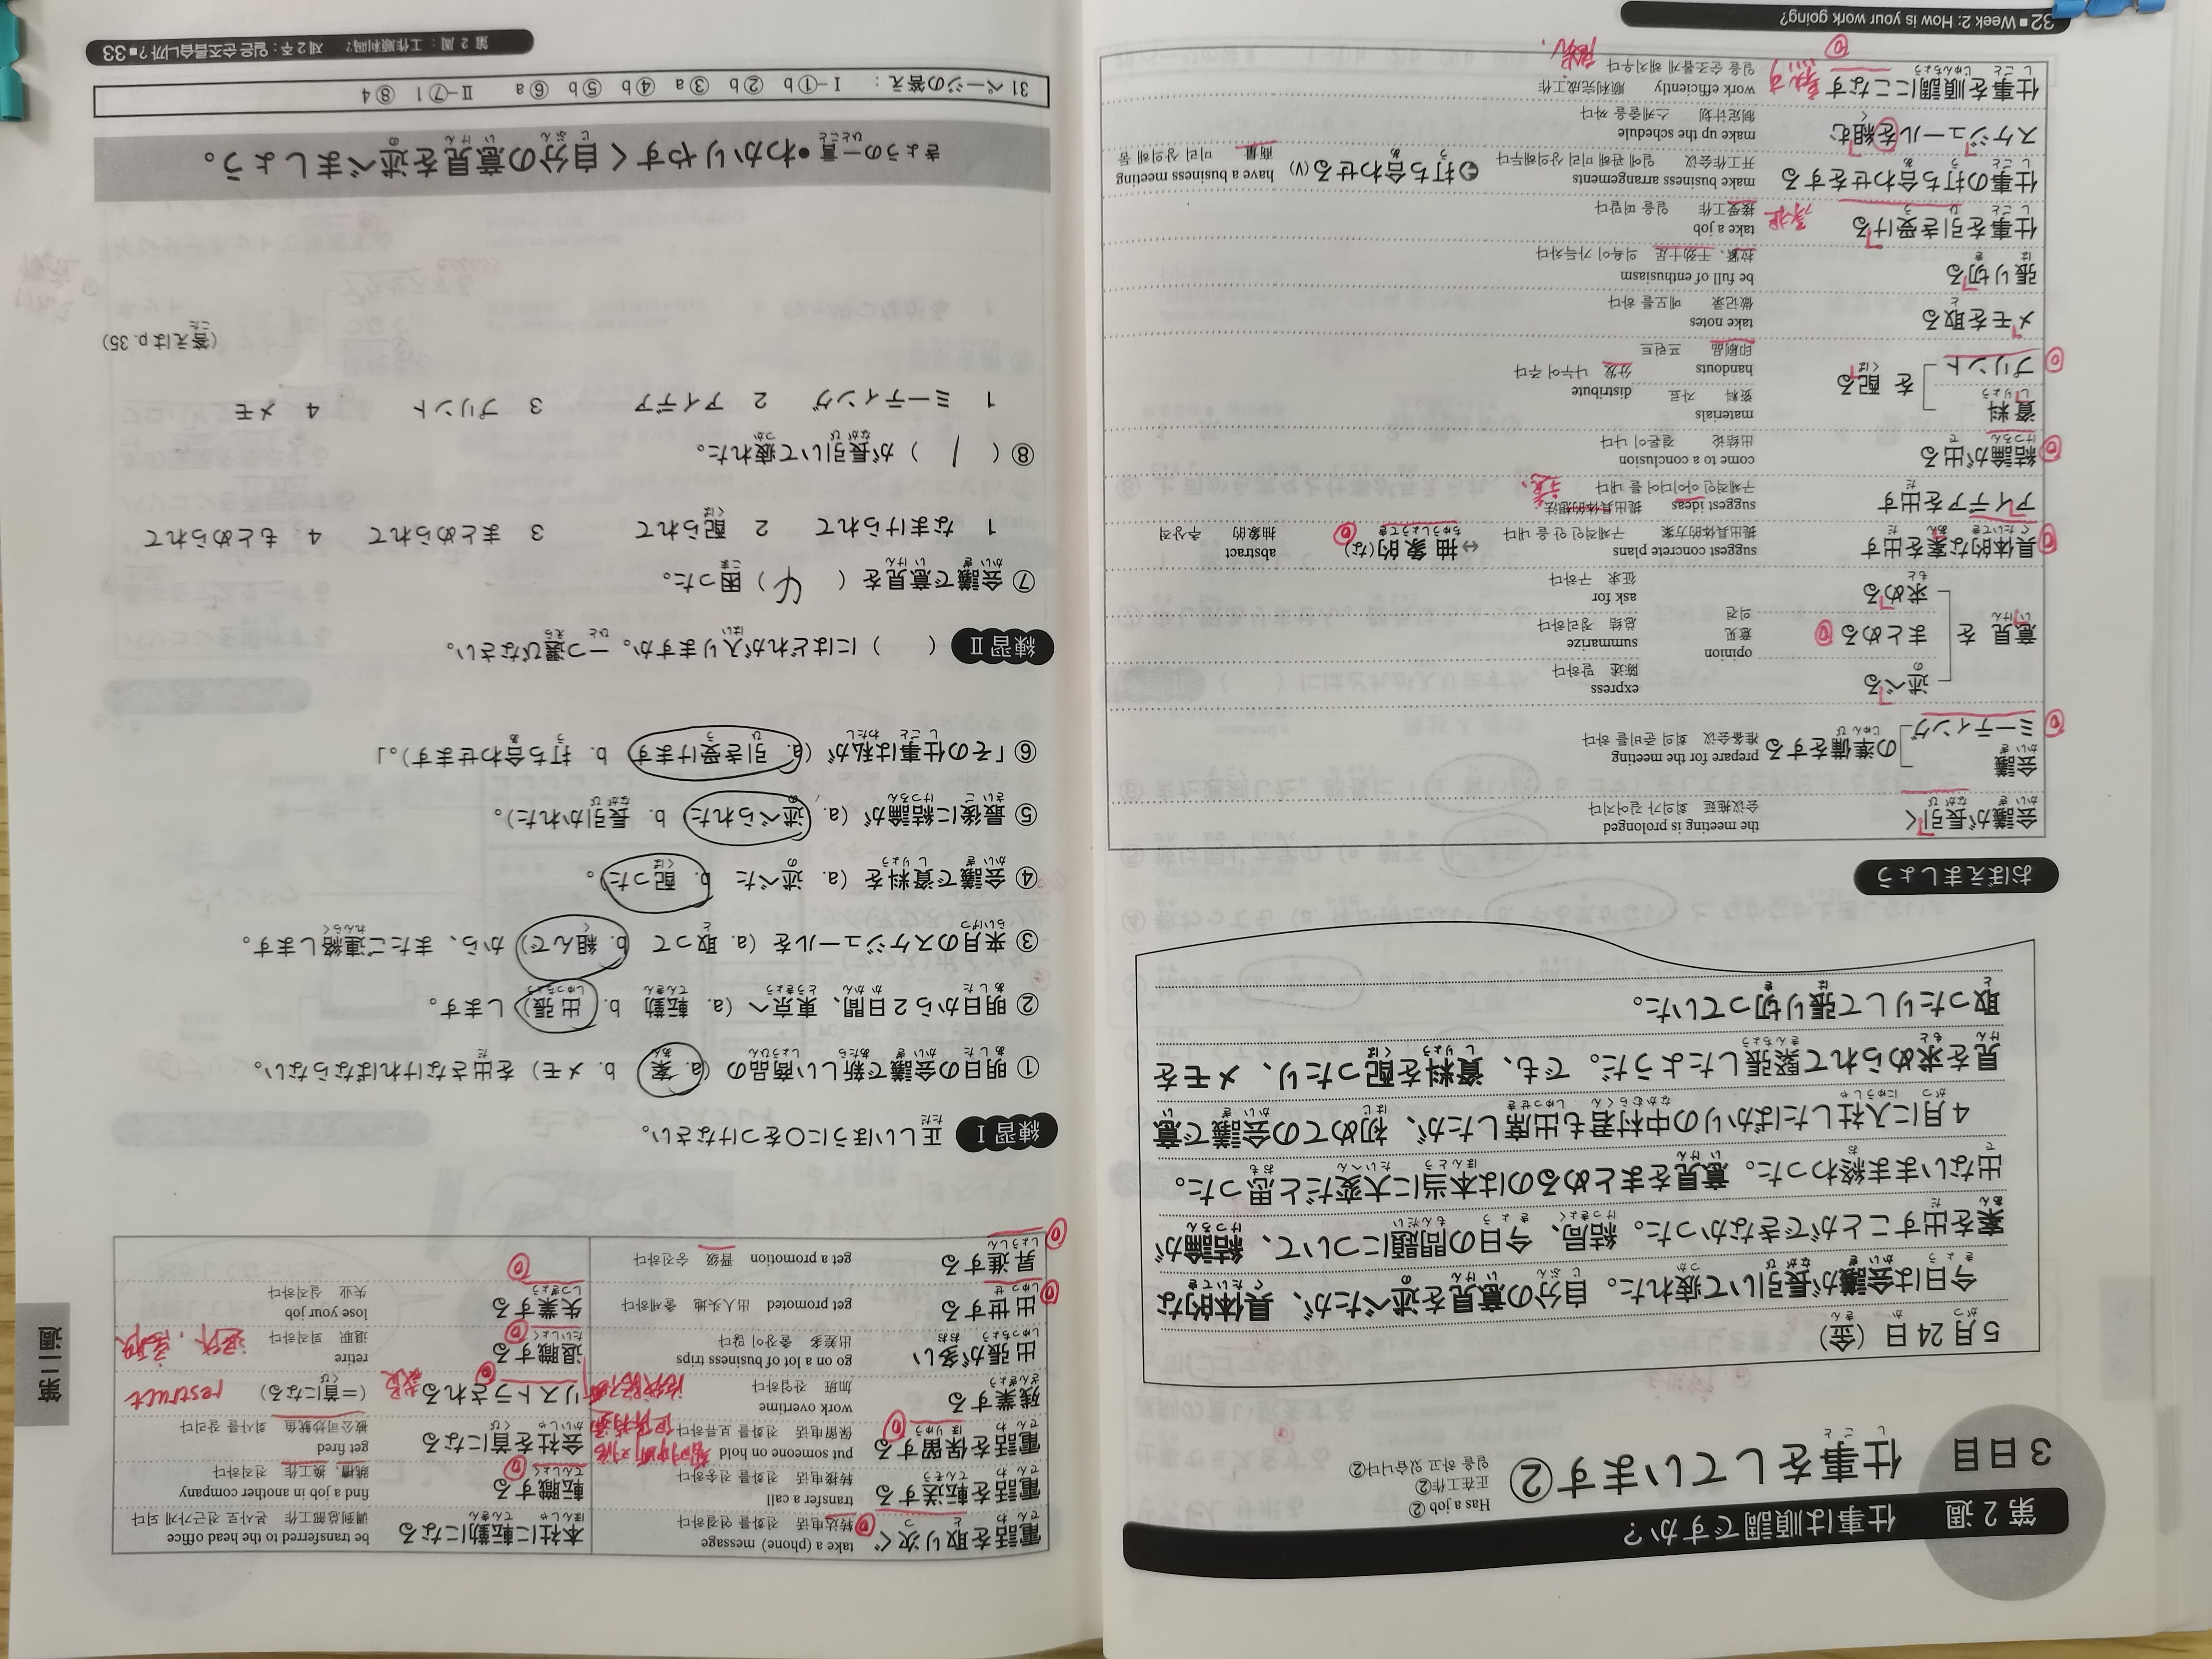 第2週 仕事は順調ですか?
3日目 仕事をしています②
Has a job ②
正在工作②
일을 하고 있습니다②
5月24日(金)
今日は会議が長引いて疲れた。自分の意見を述べたが、具体的な
案を出すことができなかった。結局、今日の問題について、結論が
出ないまま終わった。意見をまとめるのは本当に大変だと思った。
4月に入社したばかりの中村君も出席したが、初めての会議で意
見を求められて緊張したようだ。でも、資料を配ったり、メモを
取ったりして張り切っていた。
おぼえましょう
会議が長引く the meeting is prolonged 会议推延 회의가 길어지다
会議 ミーティング の準備をする prepare for the meeting 准备会议 회의 준비를 하다
意見 を opinion 意见 의견
述べる express 陈述 말하다
まとめる summarize 总结 정리하다
求める ask for 征求 구하다
具体的な案を出す suggest concrete plans 提出具体的方案 구체적인 안을 내다 ↔ 抽象的(な) abstract 抽象的 추상적
アイデアを出す suggest ideas 提出具体的想法 구체적인 아이디어를 내다
結論が出る come to a conclusion 出结论 결론이 나다
資料 materials 资料 자료
プリント handouts 印刷品 프린트
を 配る distribute 分发 나누어 주다
メモを取る take notes 做记录 메모를 하다
張り切る be full of enthusiasm 拉紧、干劲十足 의욕이 가득하다
仕事を引き受ける take a job 接受工作 일을 떠맡다
仕事の打ち合わせをする make business arrangements 开工作会议 일에 관해 미리 상의해두다 打ち合わせる(V) have a business meeting 商量 미리 상의해 둠
スケジュールを組む make up the schedule 制定计划 스케줄을 짜다
仕事を順調にこなす work efficiently 顺利完成工作 일을 순조롭게 해치우다
32■Week 2: How is your work going?
電話を取り次ぐ take a (phone) message 转达电话 전화를 연결하다
電話を転送する transfer a call 转接电话 전화를 전송하다
電話を保留する put someone on hold 保留电话 전화를 보류하다
残業する work overtime 加班 잔업하다
出張が多い go on a lot of business trips 出差多 출장이 많다
出世する get promoted 出人头地 출세하다
昇進する get a promotion 晋级 승진하다
本社に転勤になる be transferred to the head office 调到总部工作 본사로 전근가게 되다
転職する find a job in another company 跳槽、换工作 전직하다
会社を首になる get fired 被公司炒鱿鱼 회사를 잘리다
リストラされる (=首になる) restruct
退職する retire 退职 퇴직하다
失業する lose your job 失业 실직하다
第二週
練習Ⅰ 正しいほうに○をつけなさい。
① 明日の会議で新しい商品の (a. 案 b. メモ) を出さなければならない。
② 明日から2日間、東京へ (a. 転勤 b. 出張) します。
③ 来月のスケジュールを (a. 取って b. 組んで) から、またご連絡します。
④ 会議で資料を (a. 述べた b. 配った)。
⑤ 最後に結論が (a. 述べられた b. 長引かれた)。
⑥ 「その仕事は私が (a. 引き受けます b. 打ち合わせます)。」
練習Ⅱ ( ) にはどれが入りますか。一つ選びなさい。
⑦ 会議で意見を ( 4 ) 困った。
1 なまけられて 2 配られて 3 まとめられて 4 もとめられて
⑧ ( 1 ) が長引いて疲れた。
1 ミーティング 2 アイデア 3 プリント 4 メモ
(答えは p. 35)
きょうの一言 ●わかりやすく自分の意見を述べましょう。
31ページの答え: Ⅰ-①b ②b ③a ④b ⑤b ⑥a Ⅱ-⑦1 ⑧4
第2周:工作顺利吗? 제2주:일은 순조롭습니까?■33